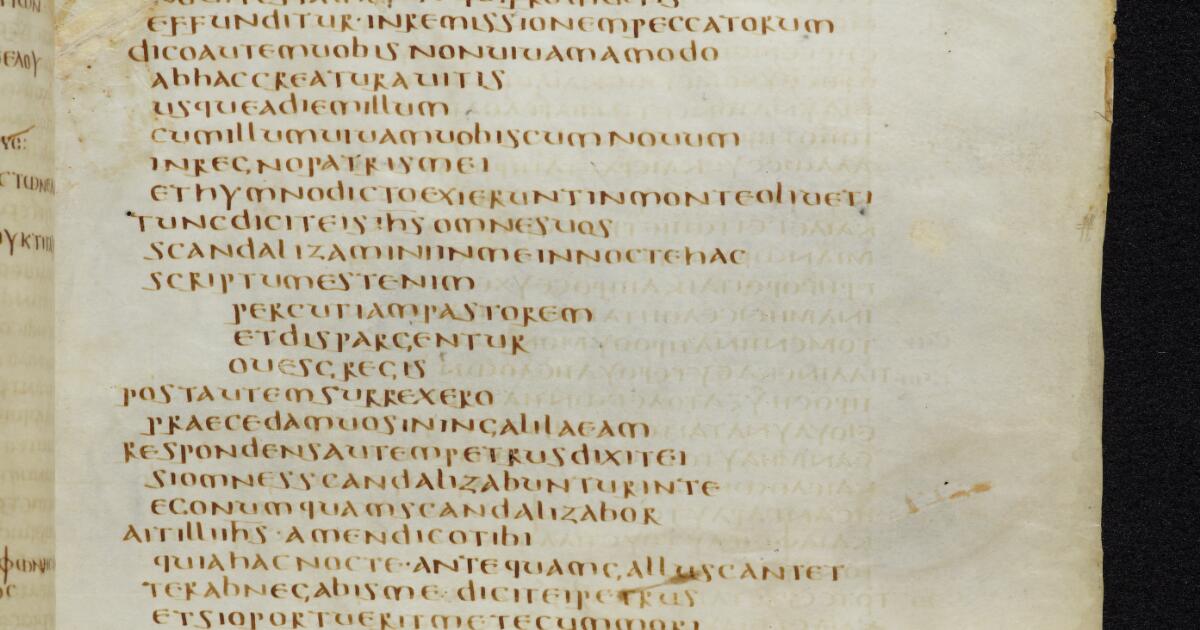 EFFUNDITUR·INREMISSIONEMPECCATORUM
DICOAUTEMUOBISNONUIUAMAMODO
ABHACCREATURAUITIS
USQUEADIEMILLUM
CUMILLUMUIUAMUOBISCUMNOUUM
INREGNOPATRISMEI
ETHYMNODICTOEXIERUNTINMONTEOLIUETI
TUNCDICITEIS:IHSOMNESUOS
SCANDALIZAMINIINMEINNOCTEHAC
SCRIPTUMESTENIM
PERCUTIAMPASTOREM
ETDISPARGENTUR
OUESGREGIS
POSTAUTEMSURREXERO
PRAECEDAMUOSININGALILAEAM
RESPONDENSAUTEMPETRUSDIXITEI
SIOMNESSCANDALIZABUNTURINTE
EGONUMQUAMSCANDALIZABOR
AITILLIIHS·AMENDICOTIBI
QUIAHACNOCTE·ANTEQUAMGALLUSCANTET
TERABNEGABISME:DICITEIPETRUS
ETSIOPORTUERITMETECUMMORI